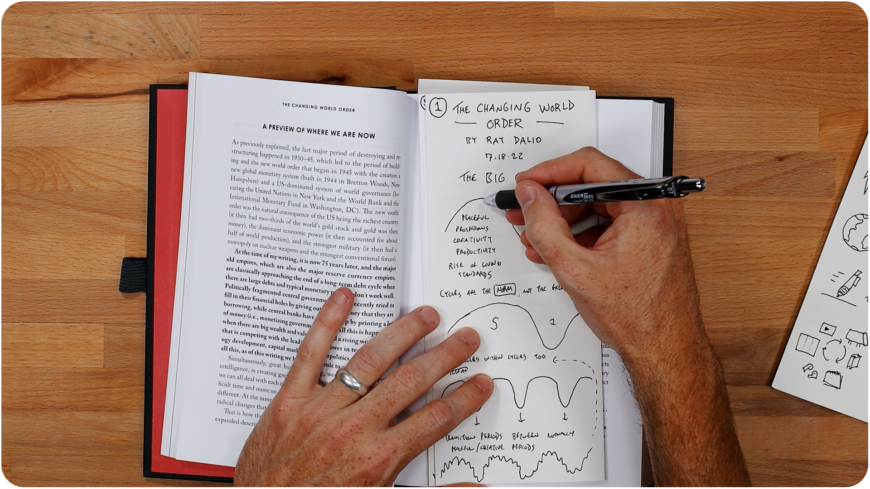 THE CHANGING WORLD ORDER
A PREVIEW OF WHERE WE ARE NOW
As previously explained, the last major period of destroying and re-
structuring happened in 1930–45, which led to the period of build-
ing and the new world order that began in 1945 with the creation
new global monetary system (built in 1944 in Bretton Woods, New
Hampshire) and a US-dominated system of world governance (lo-
cating the United Nations in New York and the World Bank and the
International Monetary Fund in Washington, DC). The new world
order was the natural consequence of the US being the richest country
(it then had two-thirds of the world's gold stock and gold was then
money), the dominant economic power (it then accounted for about
half of world production), and the strongest military (it then had a
monopoly on nuclear weapons and the strongest conventional forces)
At the time of my writing, it is now 75 years later, and the major
old empires, which are also the major reserve currency empires,
are classically approaching the end of a long-term debt cycle when
there are large debts and typical monetary don't work well.
Politically fragmented central recently tried to
fill in their financial holes by giving out money that they are
borrowing, while central banks have by printing a lot
of money (i.e., monetizing All this is happening
when there are big wealth and a rising world
that is competing with the
ogy development, capital
all this, as of this writing we
Simultaneously,
intelligence, is creating
we can all deal with each
ficult time and more
different. At the same
radical changes that
That is how the
expanded
1 THE CHANGING WORLD
ORDER
BY RAY DALIO
7.18.22
THE BIG
PEACEFUL
PROSPEROUS
CREATIVITY
PRODUCTIVITY
RISE OF LIVING
STANDARDS
CYCLES ARE THE NORM, NOT THE
S 1
WITHIN CYCLES TOO
TRANSITION PERIODS BETWEEN NORMALLY
PEACEFUL/CREATIVE PERIODS
ENERGEL